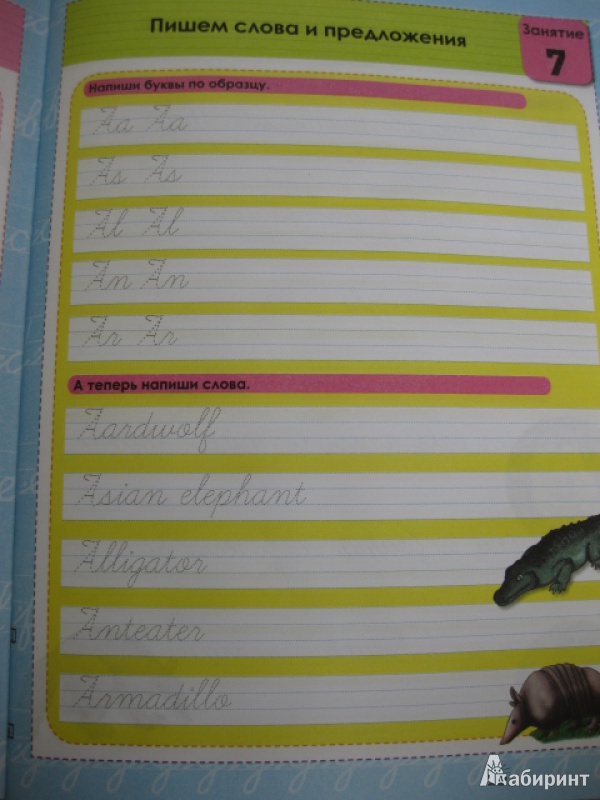 Пишем слова и предложения
Занятие
7
Напиши буквы по образцу.
Aa Aa
As As
Al Al
An An
Ar Ar
А теперь напиши слова.
Aardwolf
Asian elephant
Alligator
Anteater
Armadillo
Лабиринт